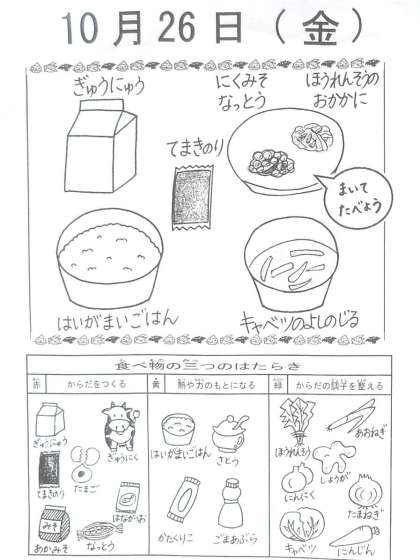 10月26日（金）
ぎゅうにゅう
にくみそ
なっとう
ほうれんそうの
おかかに
てまきのり
まいて
たべよう
はいがまいごはん
キャベツのよしのじる
食べ物の三つのはたらき
赤 からだをつくる
黄 熱や力のもとになる
緑 からだの調子を整える
ぎゅうにゅう
ぎゅうにく
てまきのり
たまご
はながつお
みそ
あかみそ
なっとう
はいがまいごはん
さとう
かたくりこ
ごまあぶら
ほうれんそう
あおねぎ
しょうが
にんにく
たまねぎ
キャベツ
にんじん